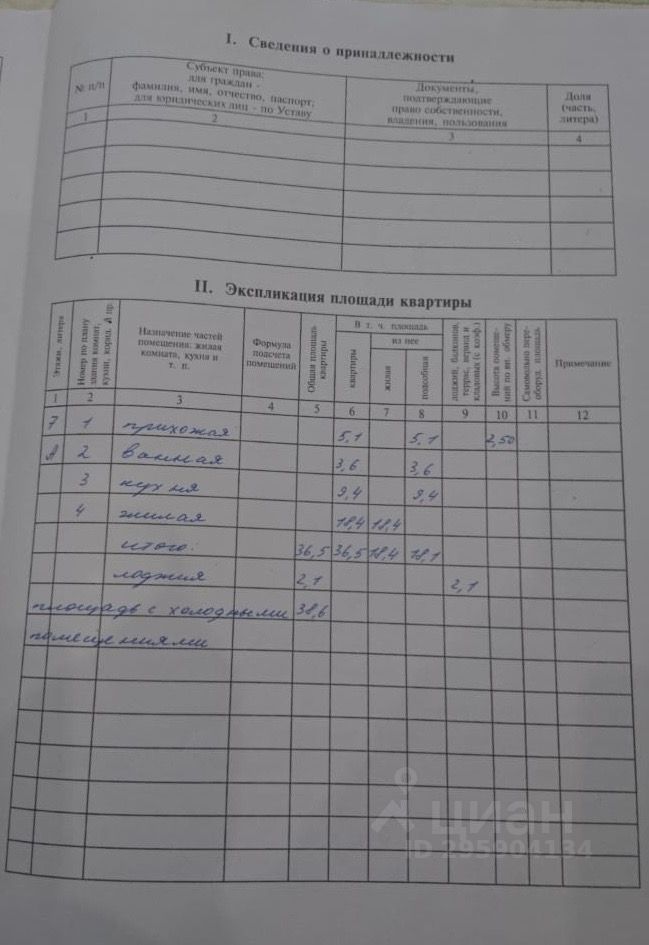 I. Сведения о принадлежности
№ п/п
Субъект права:
для граждан -
фамилия, имя, отчество, паспорт;
для юридических лиц - по Уставу
Документы,
подтверждающие
право собственности,
владения, пользования
Доля
(часть,
литера)
1 2 3 4
II. Экспликация площади квартиры
Этажи, литера
Номер по плану
здания комнат,
кухни, корид. и пр.
Назначение частей
помещения: жилая
комната, кухня и
т. п.
Формула
подсчета
помещений
Общая площадь
квартиры
В т. ч. площадь
квартиры
из нее
жилая
подсобная
лоджий, балконов,
террас, веранд и
кладовых (с коэф.)
Высота помеще-
ний по вн. обмеру
Самовольно пере-
оборуд. площадь
Примечание
1 2 3 4 5 6 7 8 9 10 11 12
7 1 прихожая 5,1 5,1 2,50
А 2 ванная 3,6 3,6
3 кухня 9,4 9,4
4 жилая 18,4 18,4
итого: 36,5 36,5 18,4 18,1
лоджия 2,1 2,1
площадь с холодными 38,6
помещениями
циан
ID 295904134